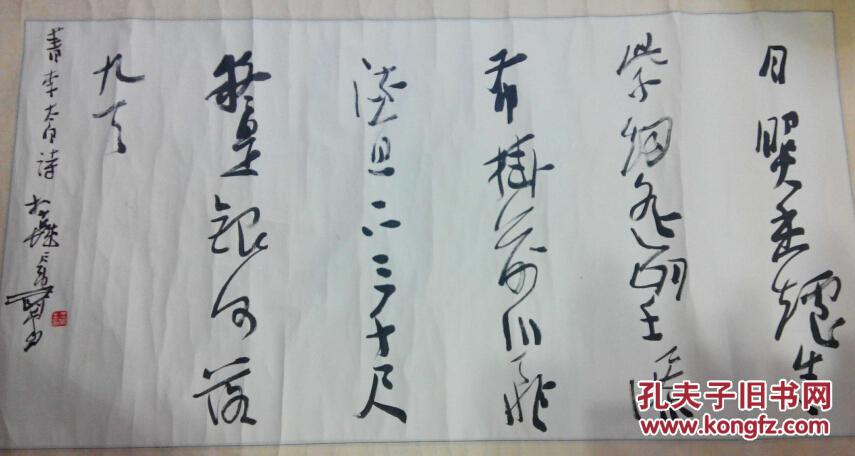 日照香爐生
紫烟遥望瀑
布掛前川飛
流直下三千尺
疑是銀河落
九天
書李太白詩
孔夫子旧书网
www.kongfz.com